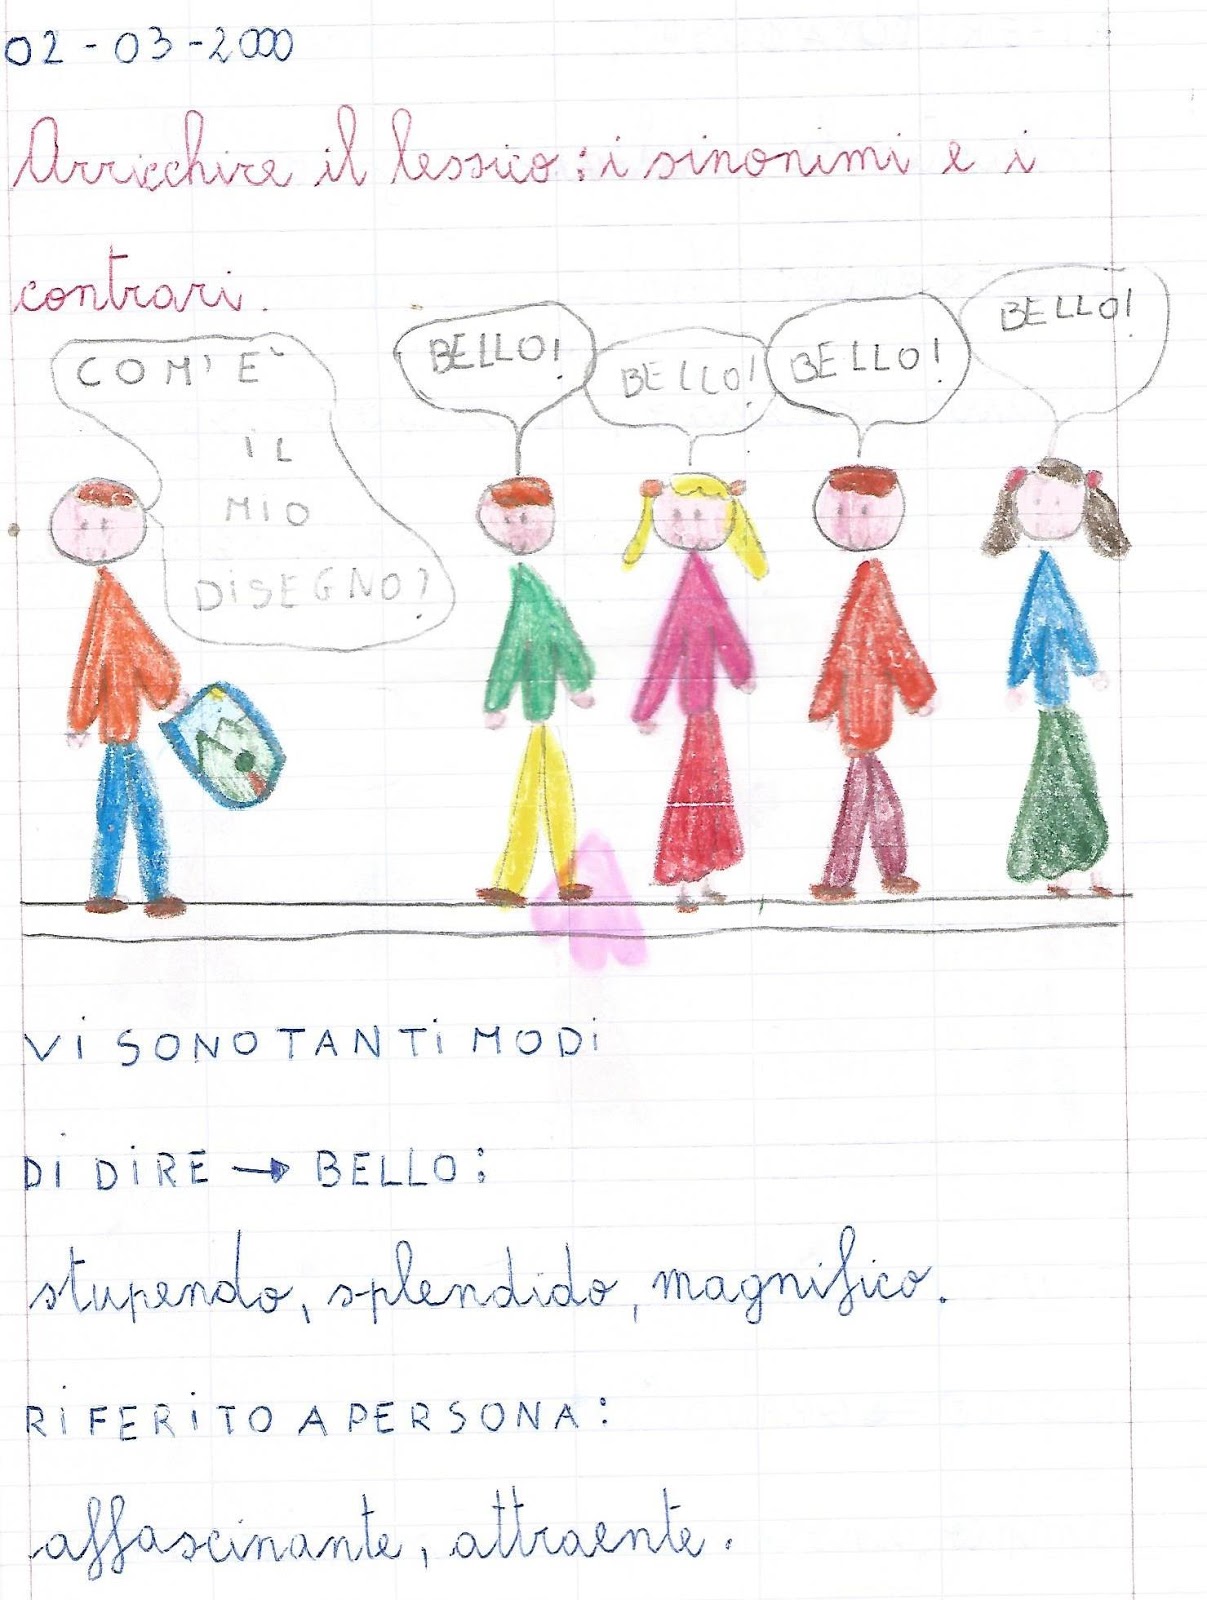 02-03-2000
Arricchire il lessico: i sinonimi e i
contrari.
COM'È
IL
MIO
DISEGNO?
BELLO!
BELLO!
BELLO!
BELLO!
VI SONO TANTI MODI
DI DIRE → BELLO:
stupendo, splendido, magnifico.
RIFERITO A PERSONA:
affascinante, attraente.